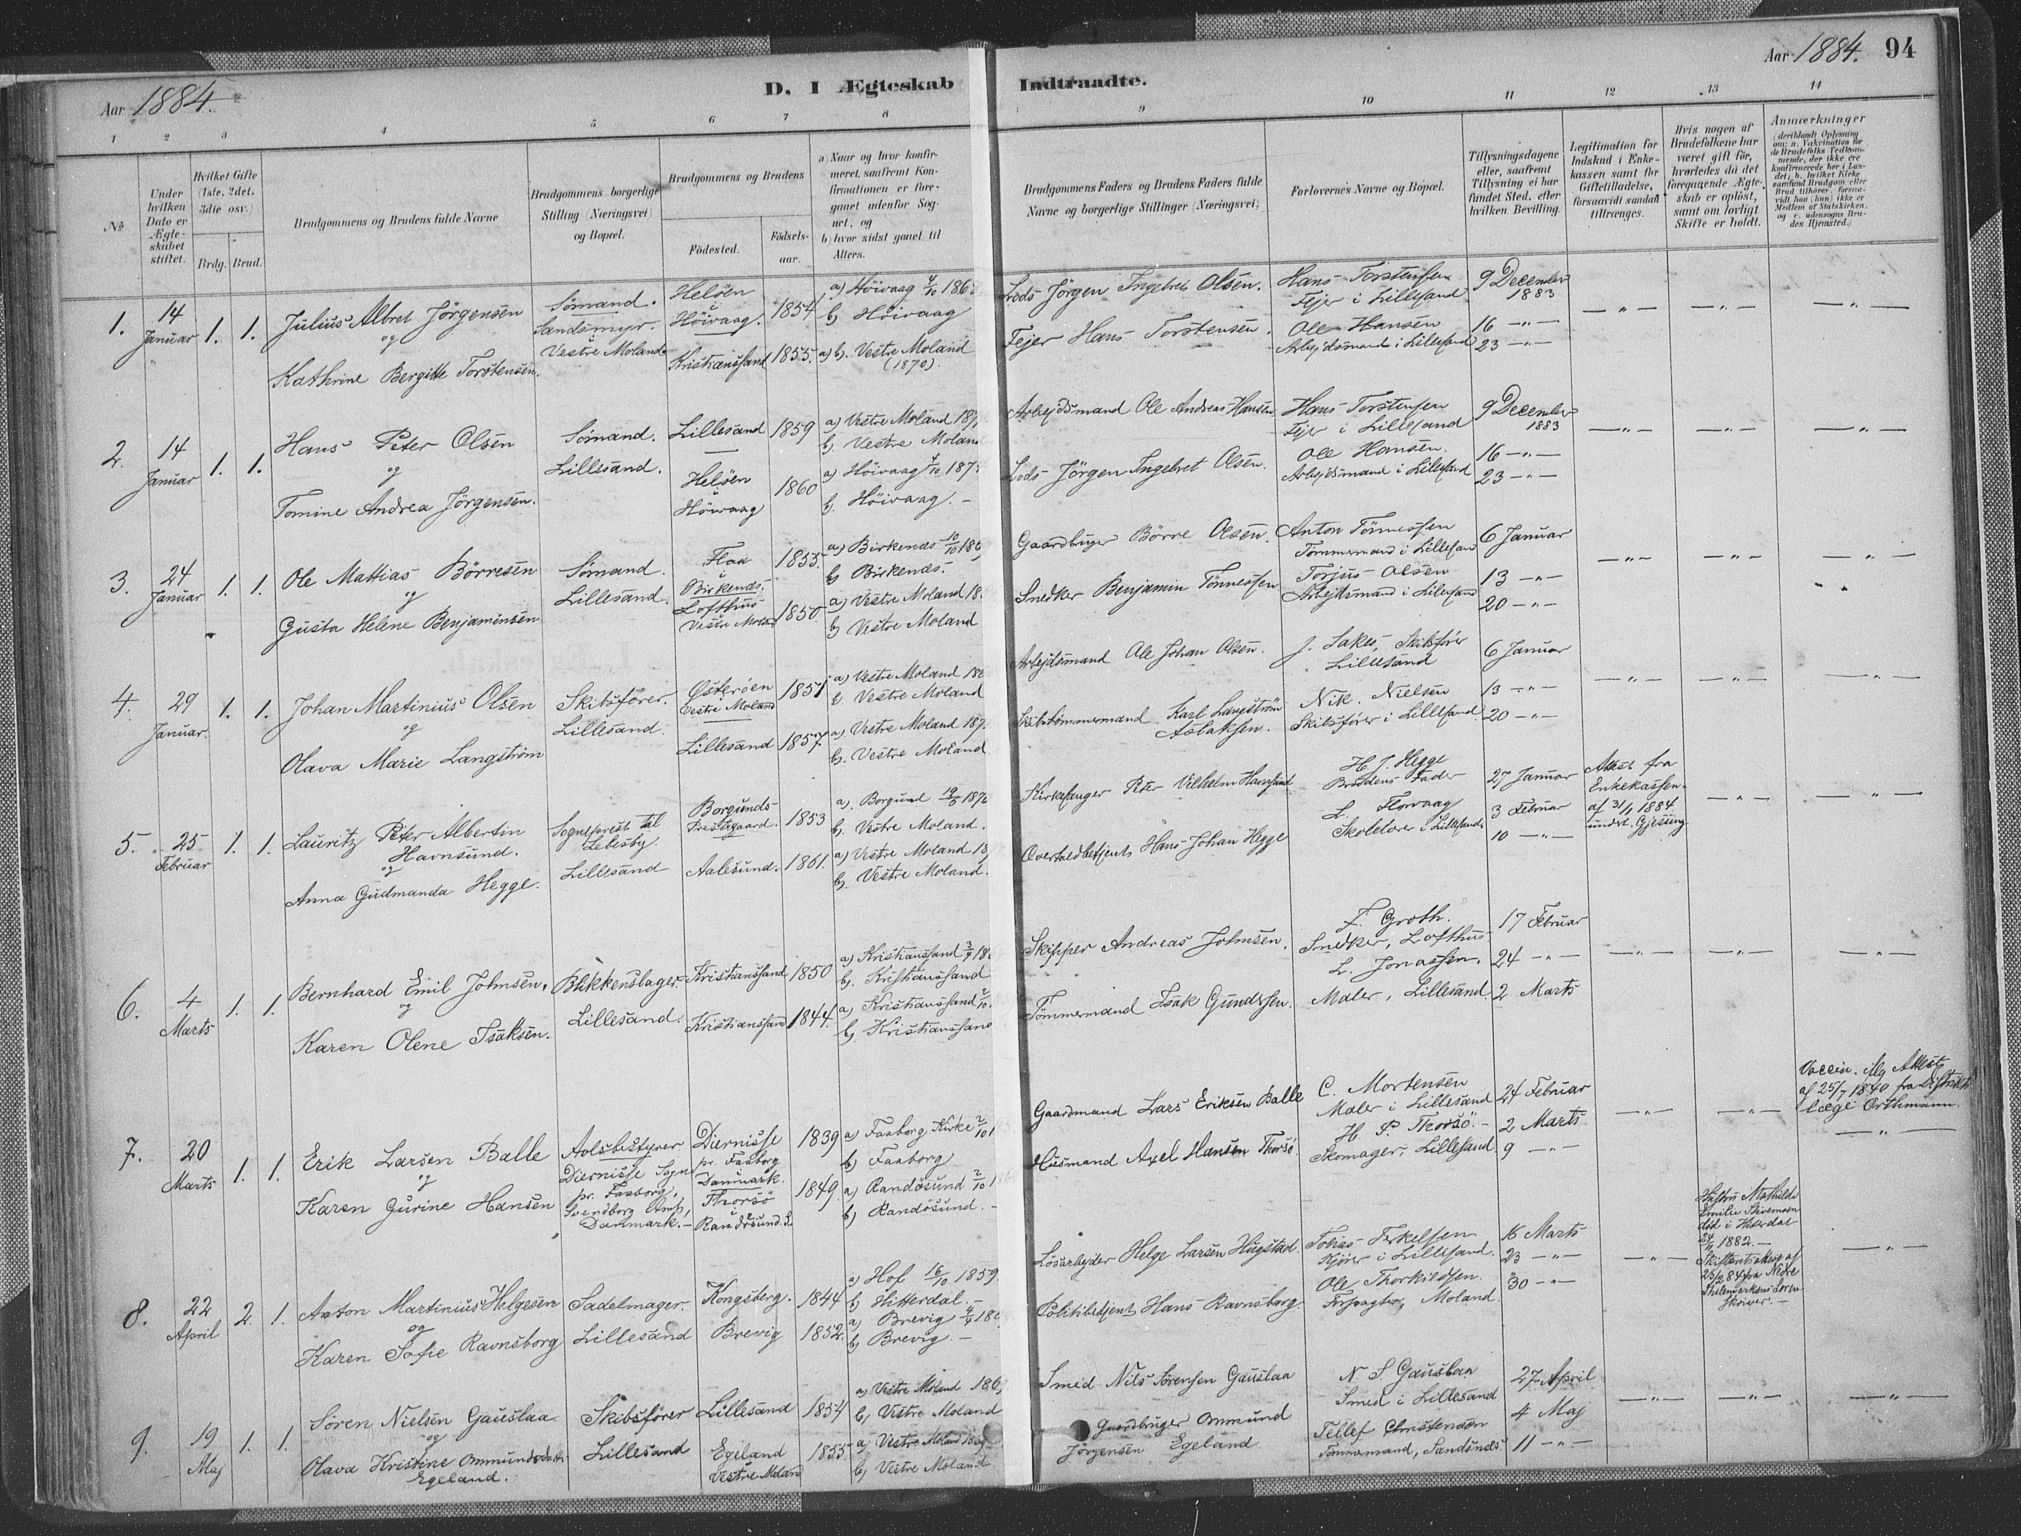 Aar 1884.
D. I Ægteskab
Indtraadte.
Aar 1884. 94
1 2 3 4 5 6 7 8 9 10 11 12 13 14
№
Under hvilken Dato er Ægteskabet stiftet.
Hvilket Gifte (1ste, 2det, 3die osv.)
Brdg. Brud.
Brudgommens og Brudens fulde Navne
Brudgommens borgerlige Stilling (Næringsvei) og Bopæl.
Brudgommens og Brudens
Fødested.
Fødselsaar.
a) Naar og hvor konfirmeret, saafremt Konfirmationen er foregaaet udenfor Sognet, og
b) hvor sidst gaaet til Alters.
Brudgommens Faders og Brudens Faders fulde Navne og borgerlige Stillinger (Næringsvei)
Forlovernes Navne og Bopæl.
Tillysningsdagene eller, saafremt Tillysning ei har fundet Sted, efter hvilken Bevilling.
Legitimation for Indskud i Enkekassen samt for Giftetilladelse, forsaavidt saadan tiltrænges.
Hvis nogen af Brudefolkene har været gift før, hvorledes da det foregaaende Ægteskab er opløst, samt om lovligt Skifte er holdt.
Anmærkninger
1. 14 Januar 1. 1.
Julius Albret Jörgensen
og
Kathrine Bergitte Torstensen.
Sömand.
Sandsmyr.
Vestre Moland.
Helöen
Höivaag. 1854
Kristianssand 1855.
a) Höivaag 4/10 186
b) Höivaag
a) b. Vestre Moland
(1870).
Lods Jörgen Ingebret Olsen.
Fejer Hans Torstensen.
Hans Torstensen
Fejer i Lillesand
Ole Hansen
Arbejdsmand i Lillesand
9 December
1883
16 —"—
23 —"—
2. 14 Januar 1. 1.
Hans Peter Olsen
og
Tomine Andrea Jörgensen.
Sömand.
Lillesand.
Lillesand 1859
Helöen
Höivaag 1860
a) Vestre Moland 187
b) Vestre Moland
a) Höivaag 4/10 187
b. Höivaag. —
Arbejdsmand Ole Andreas Hansen
Lods Jörgen Ingebret Olsen.
Hans Torstensen
Fejer i Lillesand
Ole Hansen.
Arbejdsmand i Lillesand
9 December
1883
16 —"—
23 —"—
3. 24 Januar 1. 1.
Ole Mattias Börresen
og
Gusta Helene Benjaminsen
Sömand.
Lillesand.
Flaa
i
Birkenæs. 1855.
Lofthus
Vestre Moland 1850.
a) Birkenæs 10/10 18
b) Birkenæs.
a) Vestre Moland 18
b) Vestre Moland
Gaardbruger Börre Olsen.
Snedker Benjamin Tönnessen
Anton Tönnessen
Tömmermand i Lillesand
Torjus Olsen
Arbejdsmand i Lillesand
6 Januar
13 —"—
20 —"—
4. 29 Januar. 1. 1.
Johan Martinius Olsen
og
Olava Marie Langström
Skibsförer.
Lillesand.
Österöen
Vestre Moland 1851
Lillesand 1857.
a) Vestre Moland 18
b. Vestre Moland
a) Vestre Moland 187
b. Vestre Moland
Arbejdsmand Ole Johan Olsen.
Skibstömmermand Karl Langström
Aslaksen.
J. Sakes, Skibsförer
Lillesand
Nik. Nielsen
Skibsförer i Lillesand
6 Januar
13 —"—
20 —"—
5. 25 Februar 1. 1.
Lauritz Peter Albertin
Havnsund.
og
Anna Gudmanda Hegge.
Sogneprest til
Lebesby.
Lillesand
Borgunds
Prestegaard. 1853
Aalesund. 1861.
a) Borgund 187
b. Vestre Moland.
a) Vestre Moland 18
b. Vestre Moland.
Kirkesanger Peter Vilhelm Havnsund
Overtoldbetjent Hans Johan Hegge
H. J. Hegge
Brudens Fader
L. Florvaag
Skolelærer i Lillesand
27 Januar
3 Februar
10 —"—
Attest fra
Enkekassen
af 31/1 1884
undert. Gjesing
6. 4 Marts 1. 1.
Bernhard Emil Johnsen.
og
Karen Olene Isaksen.
Blikkenslager.
Lillesand.
Kristianssand 1850
Kristianssand 1844.
a) Kristianssand 186
b. Kristianssand
a) Kristianssand
b) Kristianssand
Skipper Andreas Johnsen.
Tömmermand Isak Gundersen.
F. Groth.
Snedker, Lofthus
L. Jonassen.
Maler, Lillesand.
17 Februar
24 —"—
2 Marts
7. 20 Marts 1. 1.
Erik Larsen Balle
og
Karen Gurine Hansen
Avlsbestyrer
Diernisse Sogn
pr. Faaborg,
Svendborg Amt,
Danmark. —
Diernisse
pr. Faaborg
Danmark. 1839
Thorsö
i
Randösund. 1849
a) Faaborg Kirke
b) Faaborg
a) Randösund
b) Randösund. —
Gaardmand Lars Eriksen Balle
Husmand Axel Hansen Thorsö
C. Mortensen
Maler i Lillesand
H. P. Thorsö. —
Skomager, Lillesand
24 Februar
2 Marts
9 —"—
Vaccin. Attest
af 25/7 1840 fra Distrikts
læge Orthmann.
8. 22 April 2. 1.
Anton Martinius Helgesen
og
Karen Sofie Ravnsborg
Sadelmager.
Lillesand
Kongsberg. 1844
Brevig 1852.
a) Hof 16/10 1859.
b) Hitterdal. —
a) Brevig
b) Brevig —
Lösarbejder Helge Larsen Hugstad.
Politibetjent Hans Ravnsborg.
Tobias Terkelsen
Kjörer i Lillesand.
Ole Thorkildsen.
Forpagter, Moland
16 Marts
23 —"—
30 —"—
Hustru Mathilde
Emilie
död i Hiterdal
1882. —
Skifteattest af
fra Nedre
Thelemarkens Soren
skriver. —
9. 19 Maj 1. 1.
Sören Nielsen Gauslaa
og
Olava Kristine Ommundsdatter
Egeland.
Skibsförer
Lillesand
Lillesand 1854
Egeland
Vestre Moland 1855.
a) Vestre Moland 186
b) Vestre Moland
a) Vestre Moland
b) Vestre Moland
Smed Nils Sörensen Gauslaa
Gaardbruger Ommund
Jörgensen Egeland.
N. S. Gauslaa
Smed i Lillesand
Tellef Christensen
Tömmermand, Sandsnæs
27 April
4 Maj
11 —"—